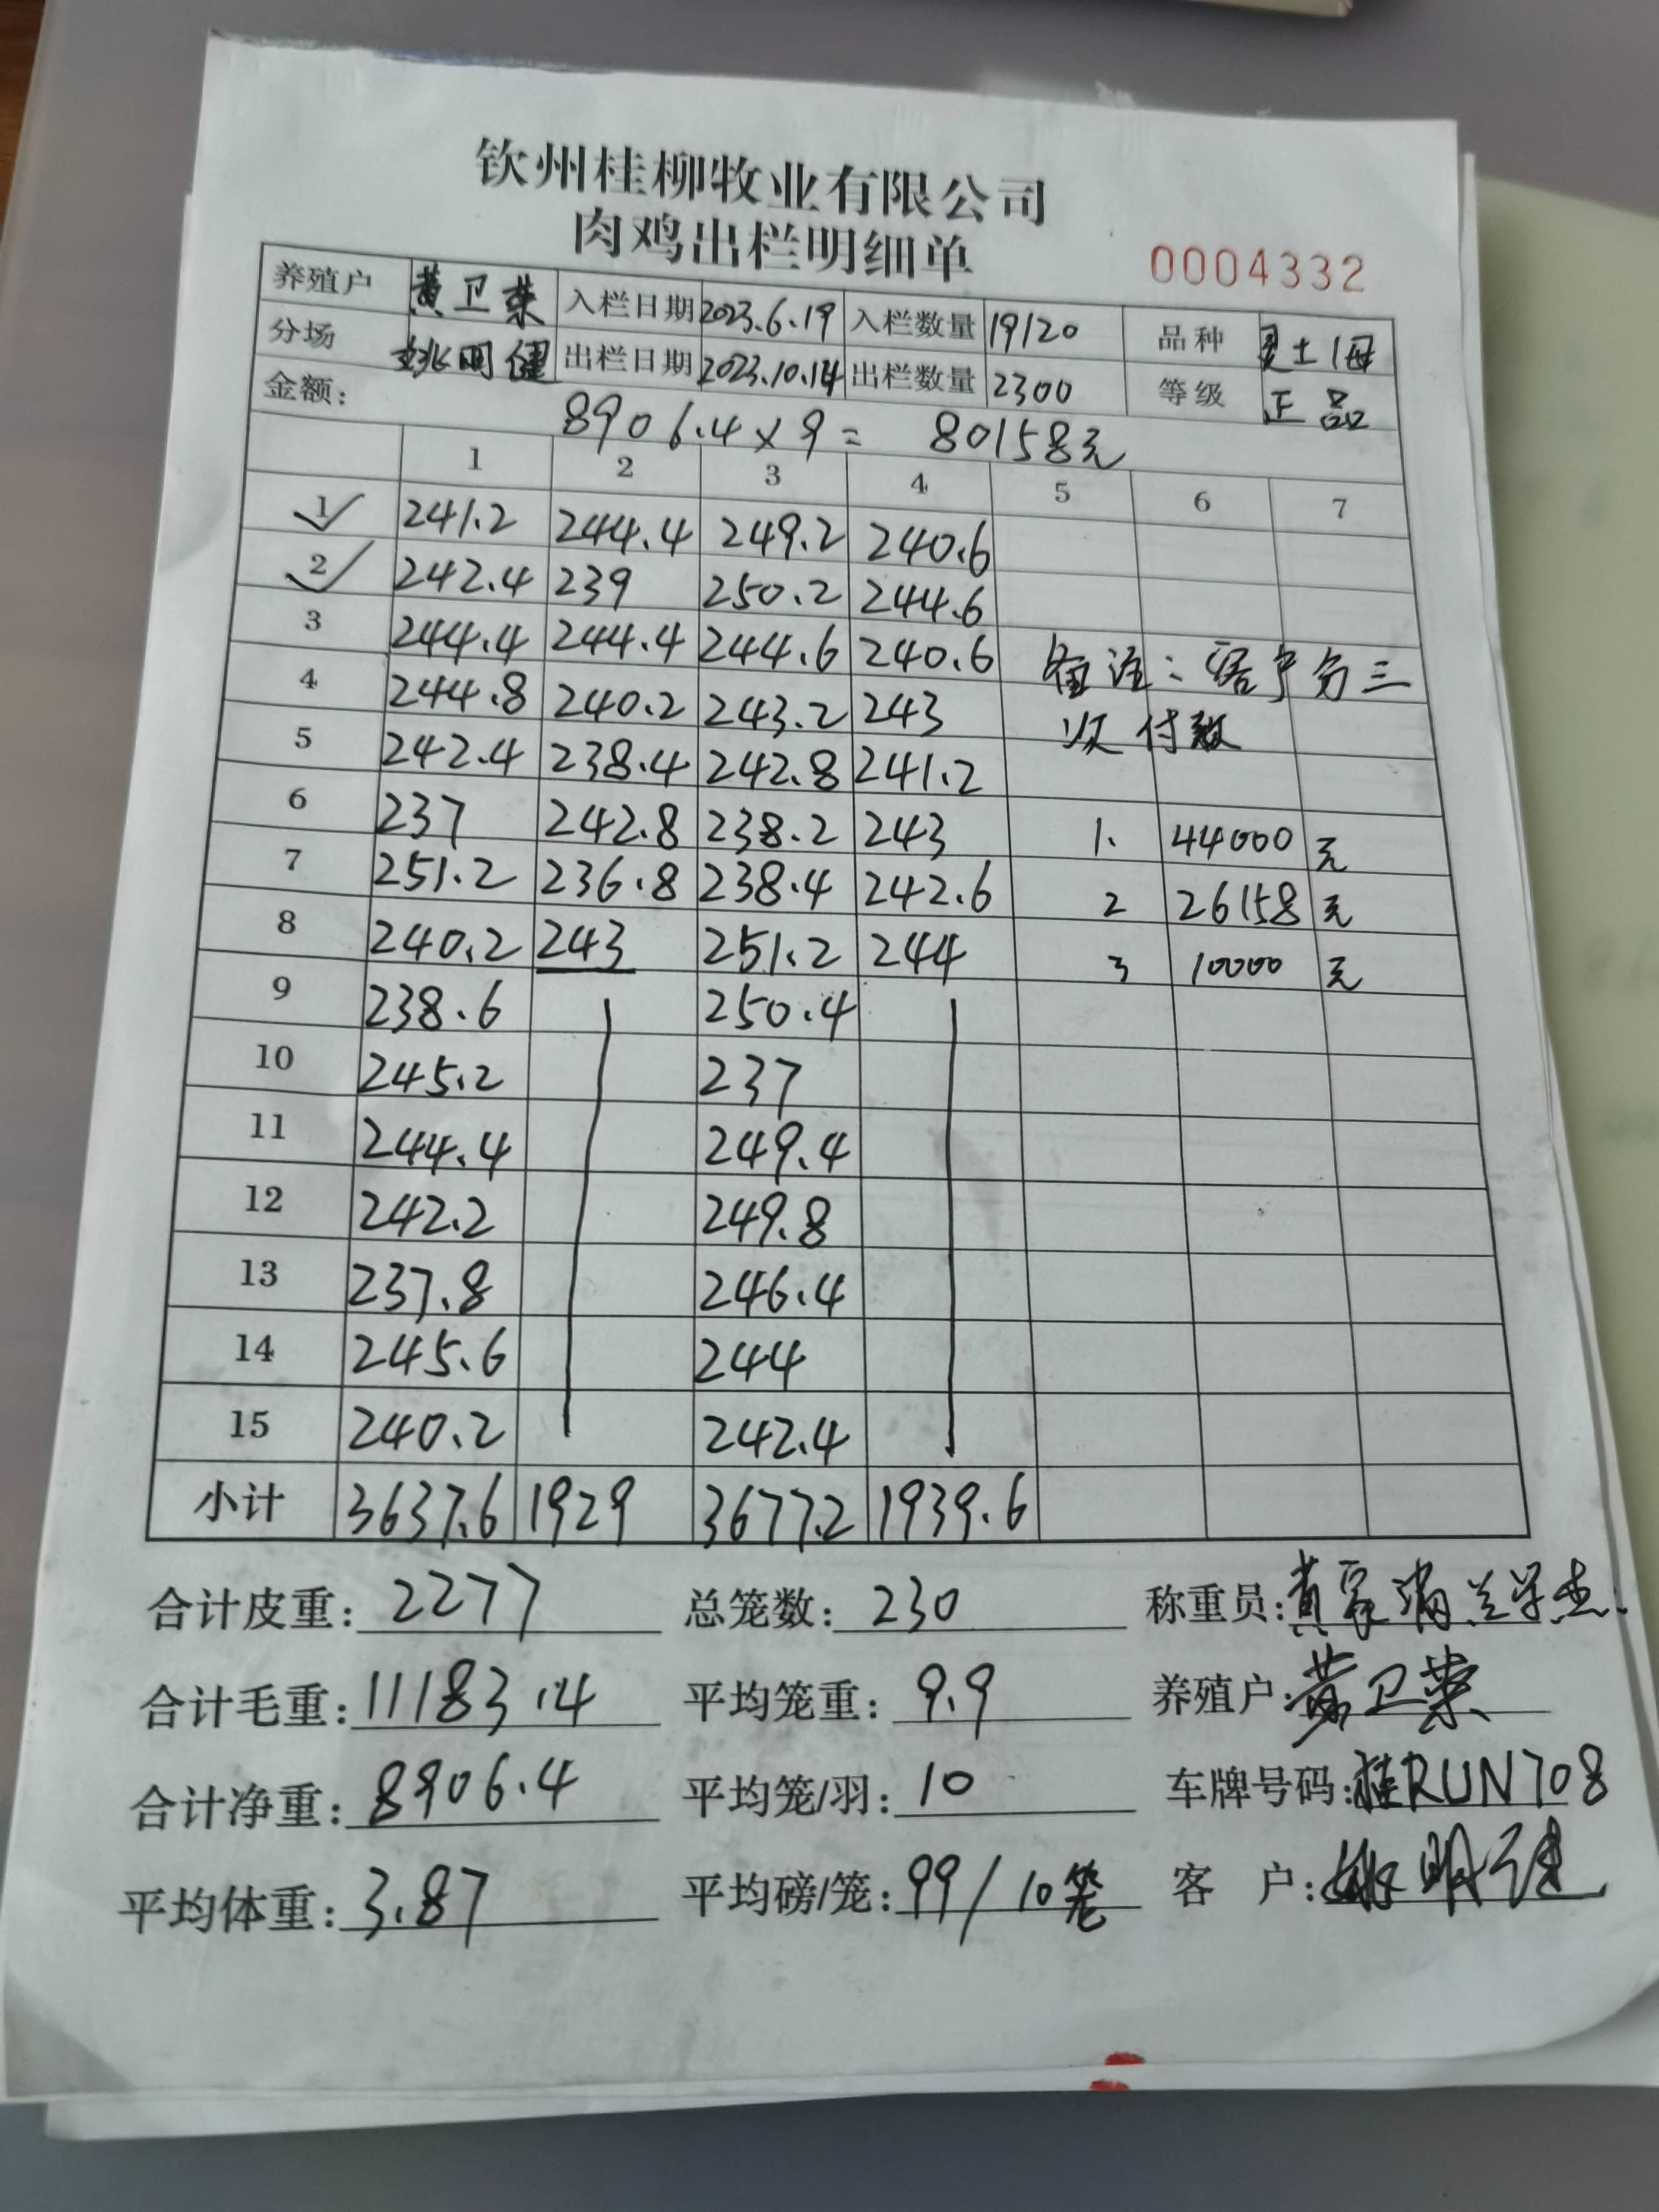 钦州桂柳牧业有限公司
肉鸡出栏明细单
0004332
养殖户 黄卫荣 入栏日期 2023.6.19 入栏数量 19120 品种 灵土1母
分场 姚明健 出栏日期 2023.10.14 出栏数量 2300 等级 正品
金额: 8906.4×9= 80158元
1 2 3 4 5 6 7
1 241.2 244.4 249.2 240.6
2 242.4 239 250.2 244.6
3 244.4 244.4 244.6 240.6 备注:客户分三
4 244.8 240.2 243.2 243 次付款
5 242.4 238.4 242.8 241.2
6 237 242.8 238.2 243 1. 44000 元
7 251.2 236.8 238.4 242.6 2 26158 元
8 240.2 243 251.2 244 3 10000 元
9 238.6 250.4
10 245.2 237
11 244.4 249.4
12 242.2 249.8
13 237.8 246.4
14 245.6 244
15 240.2 242.4
小计 3637.6 1929 3677.2 1939.6
合计皮重: 2277 总笼数: 230 称重员: 黄
合计毛重: 11183.4 平均笼重: 9.9 养殖户: 黄卫荣
合计净重: 8906.4 平均笼/羽: 10 车牌号码: 桂RUN708
平均体重: 3.87 平均磅/笼: 99/10笼 客户: 姚明健